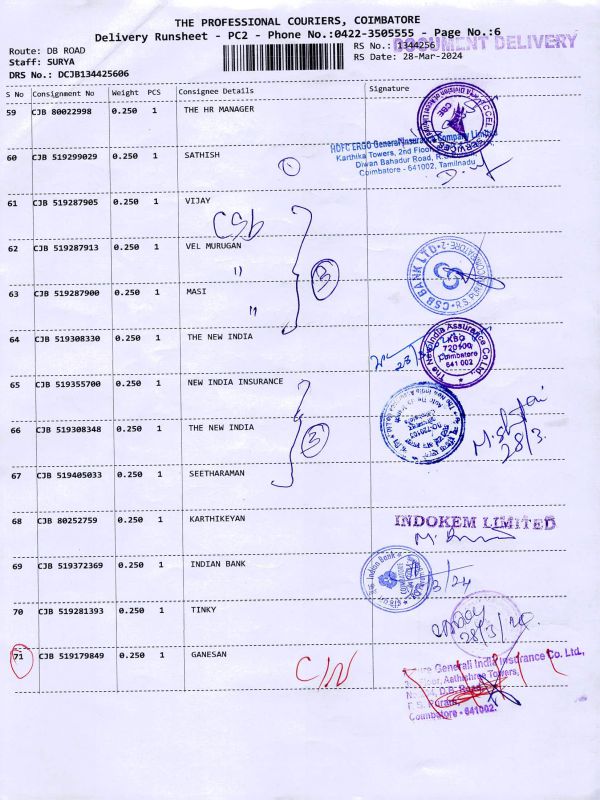 THE PROFESSIONAL COURIERS, COIMBATORE
Delivery Runsheet - PC2 - Phone No.:0422-3505555 - Page No.:6
Route: DB ROAD
RS No.: 1344256
DOCUMENT DELIVERY
Staff: SURYA
RS Date: 28-Mar-2024
DRS No.: DCJB134425606
S No Consignment No Weight PCS Consignee Details Signature
59 CJB 80022998 0.250 1 THE HR MANAGER
HDFC ERGO General Insurance Company Limited
Karthika Towers, 2nd Floor,
Diwan Bahadur Road, R.S. Puram,
Coimbatore - 641002, Tamilnadu
60 CJB 519299029 0.250 1 SATHISH
1
61 CJB 519287905 0.250 1 VIJAY
CSB
62 CJB 519287913 0.250 1 VEL MURUGAN
"
3
CSB BANK LTD
63 CJB 519287900 0.250 1 MASI
"
64 CJB 519308330 0.250 1 THE NEW INDIA
The New India Assurance Co.Ltd
720100
Coimbatore
641 002
65 CJB 519355700 0.250 1 NEW INDIA INSURANCE
66 CJB 519308348 0.250 1 THE NEW INDIA
3
28/3.
67 CJB 519405033 0.250 1 SEETHARAMAN
68 CJB 80252759 0.250 1 KARTHIKEYAN
INDOKEM LIMITED
69 CJB 519372369 0.250 1 INDIAN BANK
Indian Bank
3/24
70 CJB 519281393 0.250 1 TINKY
28/3/24
71 CJB 519179849 0.250 1 GANESAN
C/N
Generali India Insurance Co. Ltd.,
Floor, Aathishree Towers,
D.B. Road,
R.S. Puram,
Coimbatore - 641002.